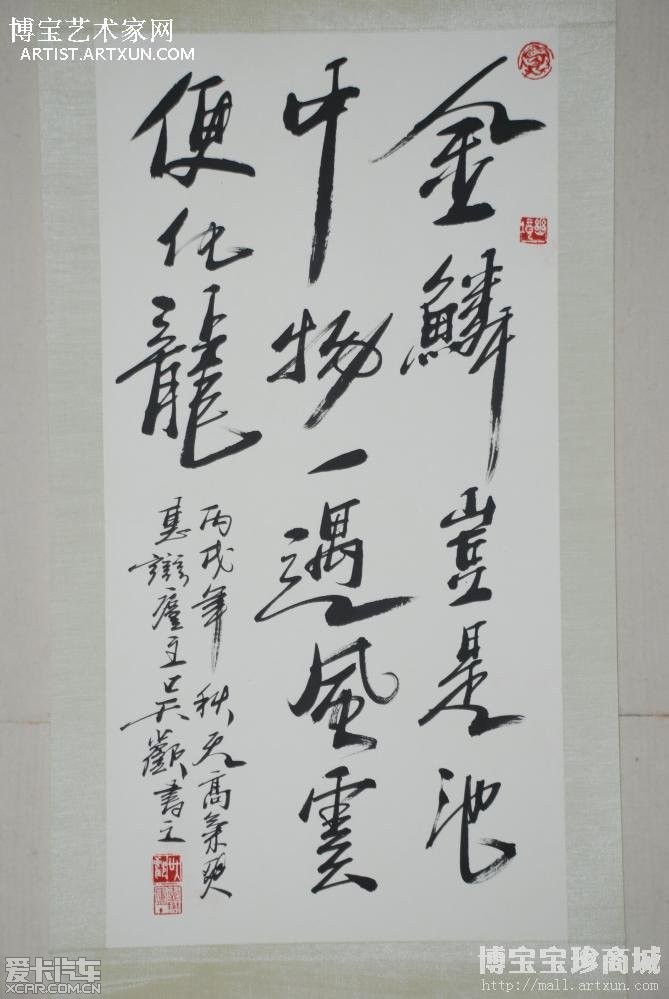 博宝艺术家网
ARTIST.ARTXUN.COM
金鱗豈是池
中物一遇風雲
便化龍
丙戌年秋天高氣爽
廬主吳歡書之
爱卡汽车
XCAR.COM.CN
博宝宝珍商城
http://mall.artxun.com